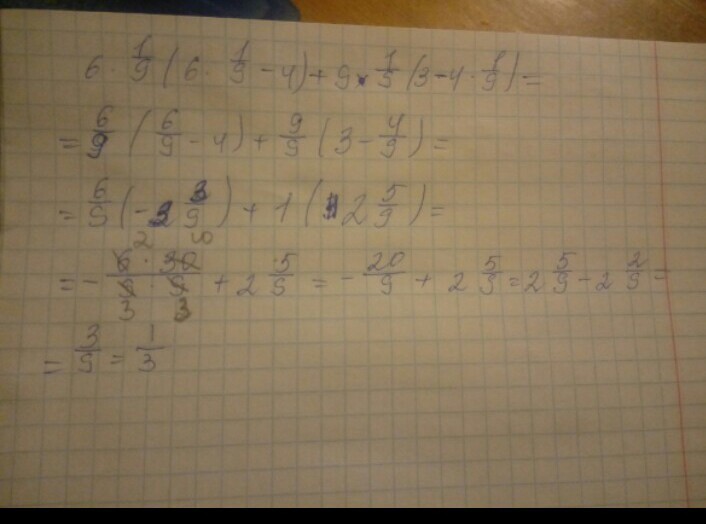 6 · 1/9 (6 · 1/9 - 4) + 9 · 1/9 (3 - 4 · 1/9) =
= 6/9 (6/9 - 4) + 9/9 (3 - 4/9) =
= 6/9 (-3 3/9) + 1 (2 5/9) =
= - 6 · 30 / 9 · 9 + 2 5/9 = - 20/9 + 2 5/9 = 2 5/9 - 2 2/9 =
= 3/9 = 1/3